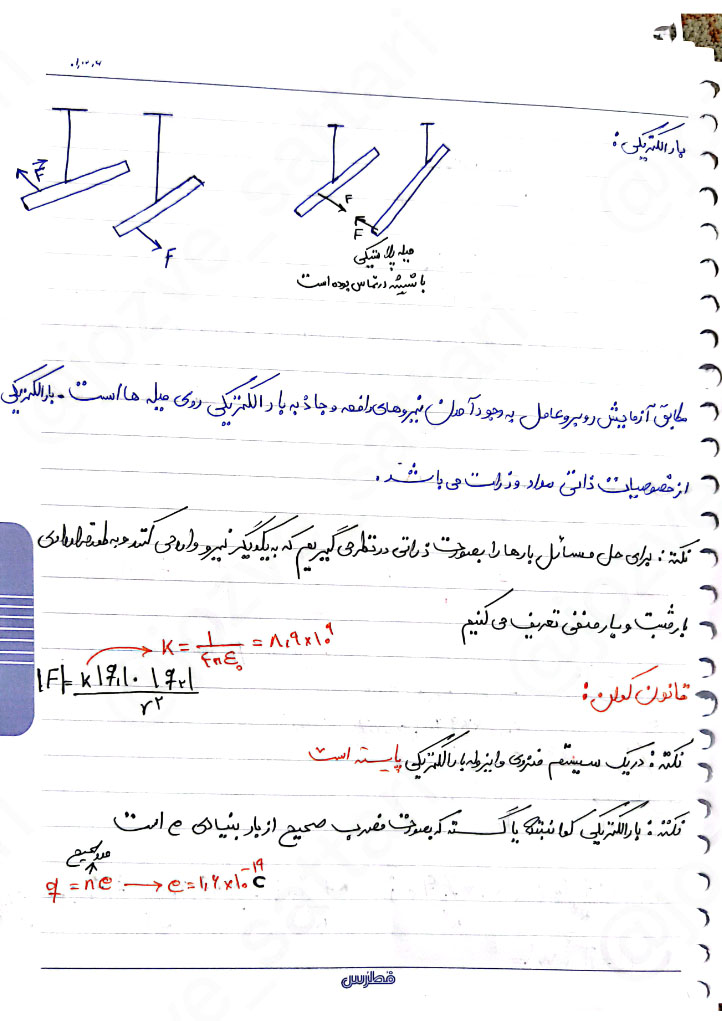 ۰۱,۱۲,۰۶
بار الکتریکی:
F⃗
F
F
F
میله پلاستیکی
با شیشه در تماس بوده است
مطابق آزمایش روبرو عامل به وجود آمدن نیروهای دافعه و جاذبه بار الکتریکی روی میله ها است. بار الکتریکی
از خصوصیات ذاتی مواد و ذرات می باشد.
نکته: برای حل مسائل بارها را بصورت ذراتی در نظر می گیریم که به یکدیگر نیرو وارد می کنند و به طور قراردادی
بار مثبت و بار منفی تعریف می کنیم
K = 1/۴πε₀ = ۸,۹×۱۰⁹
قانون کولن:
|F| = k|q₁|.|q₂| / r²
نکته: در یک سیستم فیزیکی و ایزوله بار الکتریکی پایسته است
نکته: بار الکتریکی کوانتیده یا گسسته که بصورت مضرب صحیح از بار بنیادی e است
عدد صحیح
q = ne → e = ۱,۶×۱۰⁻¹⁹ C